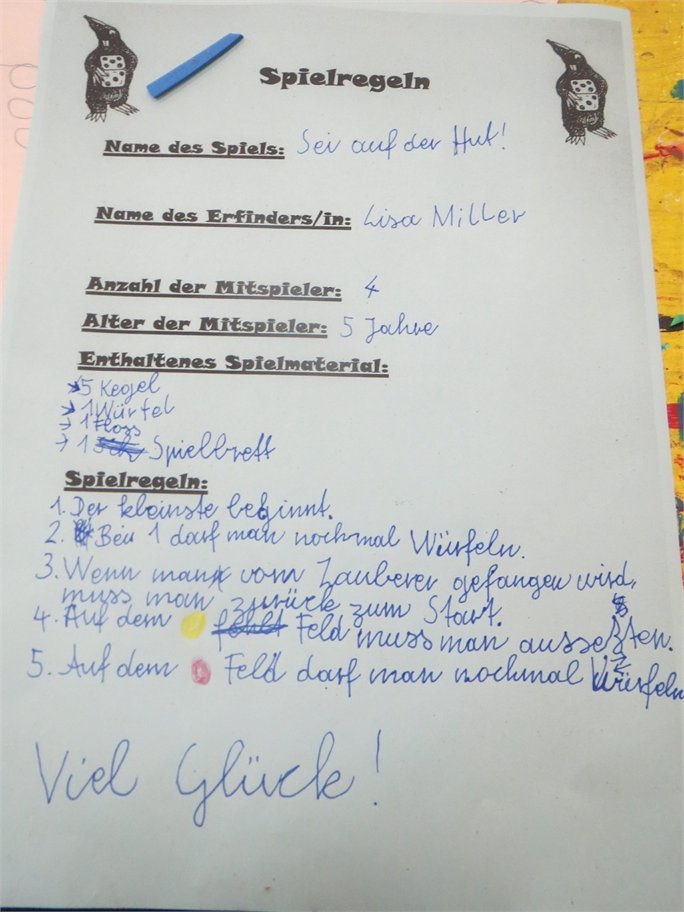 Spielregeln
Name des Spiels: Sei auf der Hut!
Name des Erfinders/in: Lisa Miller
Anzahl der Mitspieler: 4
Alter der Mitspieler: 5 Jahre
Enthaltenes Spielmaterial:
→ 5 Kegel
→ 1 Würfel
→ 1 Floss
→ 1 Spielbrett
Spielregeln:
1. Der kleinste beginnt.
2. Bei 1 darf man nochmal Würfeln.
3. Wenn man vom Zauberer gefangen wird,
muss man zurück zum Start.
4. Auf dem Feld muss man aussetzten.
5. Auf dem Feld darf man nochmal Würfeln
Viel Glück!